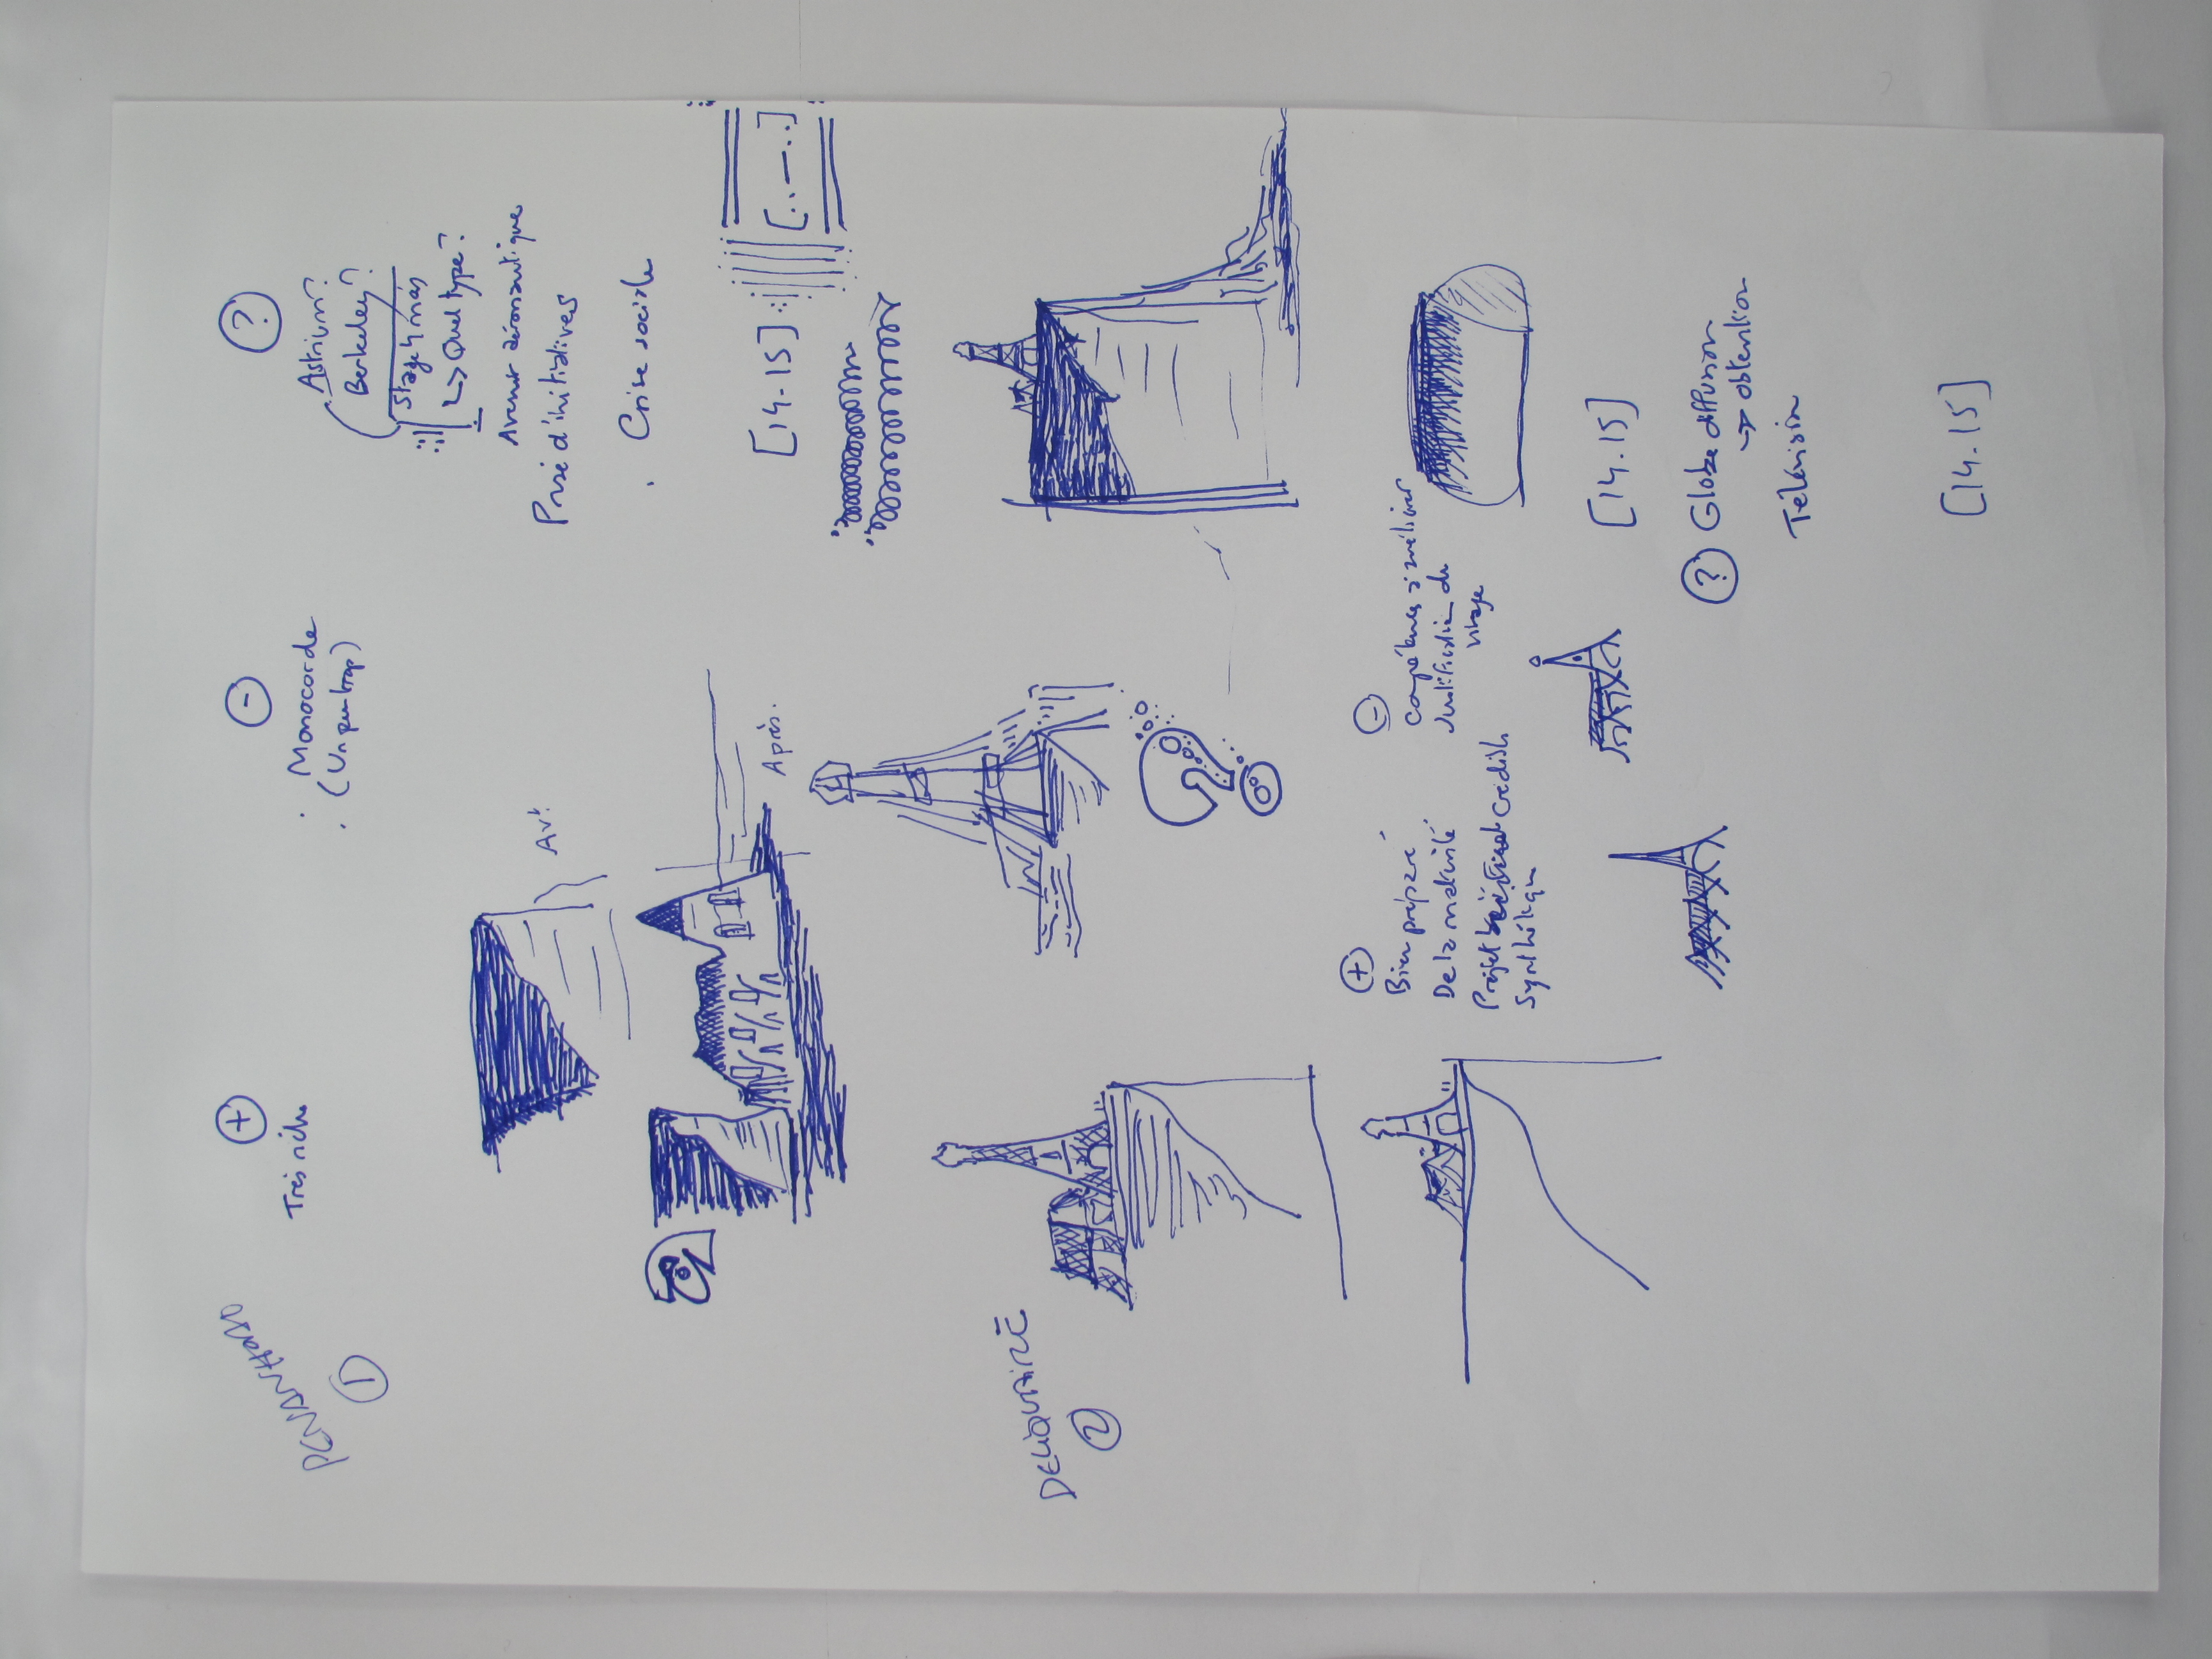 ①
⊕
Très riche
⊖
Monocorde
(Un peu trop)
?
Astrium?
Berkeley?
Stage 4 mois
↳ Quel type?
Avenir aéronautique
Prise d'initiatives
Crise sociale
[14-15]
Avt.
Après.
②
⊕
Bien préparé
De la maturité
Projet crédible
⊖
Compétences à améliorer
Justification du
[14.15]
? Globe diffusion
→ obtention
Télévision
[14.15]